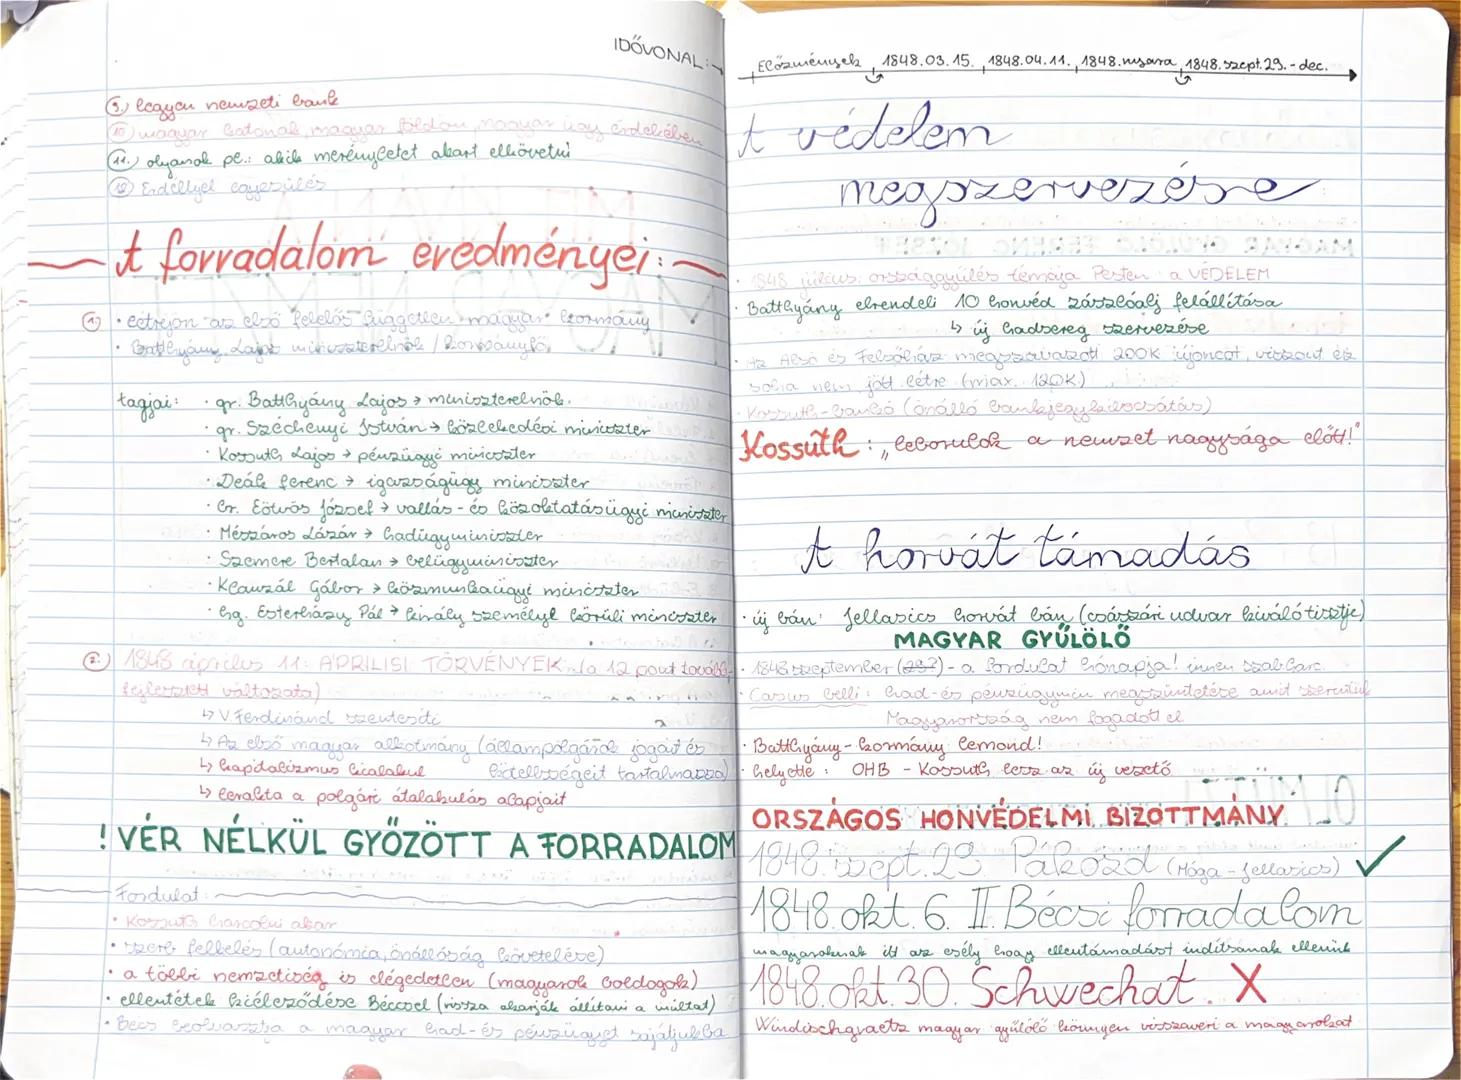 IDŐVONAL:→
9.) legyen nemzeti bank
10.) magyar katonák magyar földön, magyar ügy érdekében
11.) olyanok pl.: akik merényletet akart elkövetni
12.) Erdéllyel egyesülés
A forradalom eredményei:
1.) · létrejön az első felelős független magyar kormány
· Batthyány Lajos miniszterelnök / kormányfő
tagjai: · gr. Batthyány Lajos → miniszterelnök.
· gr. Széchenyi István → közlekedési miniszter
· Kossuth Lajos → pénzügyi miniszter
· Deák Ferenc → igazságügy miniszter
· br. Eötvös József → vallás- és közoktatásügyi miniszter
· Mészáros Lázár → hadügyminiszter
· Szemere Bertalan → belügyminiszter
· Klauzál Gábor → közmunkaügyi miniszter
· hg. Esterházy Pál → király személye körüli miniszter
2.) 1848 április 11: ÁPRILISI TÖRVÉNYEK (a 12 pont tovább-
fejlesztett változata)
↳ V. Ferdinánd szentesíti
↳ Az első magyar alkotmány (állampolgárok jogait és
kötelességeit tartalmazza)
↳ kapitalizmus kialakul
↳ lerakta a polgári átalakulás alapjait
! VÉR NÉLKÜL GYŐZÖTT A FORRADALOM
Fordulat:
· Kossuth harcolni akar
· szerb felkelés (autonómia, önállóság követelése)
· a többi nemzetiség is elégedetlen (magyarok boldogok)
· ellentétek kiéleződése Béccsel (vissza akarják állítani a múltat)
· Bécs beolvasztja a magyar had- és pénzügyet sajátjukba
Előzmények 1848.03.15. 1848.04.11. 1848.nyara 1848.szept.29.-dec.
A védelem
megszervezése
· 1848 július: országgyűlés témája Pesten: a VÉDELEM
· Batthyány elrendeli 10 honvéd zászlóalj felállítása
↳ új hadsereg szervezése
· Az Alsó és Felsőház megszavazott 200K újoncot, viszont ez
soha nem jött létre (max. 120K)
· Kossuth-bankó (önálló bankjegykibocsátás)
Kossuth: „leborulok a nemzet nagysága előtt!"
A horvát támadás
· új bán: Jellasics horvát bán (császári udvar kiváló tisztje)
MAGYAR GYŰLÖLŐ
· 1848 szeptember (29?) - a fordulat hónapja! innen szab.harc.
· Casus belli: had- és pénzügymin megszüntetése amit szerintük
Magyarország nem fogadott el
· Batthyány-kormány lemond!
· helyette: OHB - Kossuth lesz az új vezető
ORSZÁGOS HONVÉDELMI BIZOTTMÁNY
1848. szept. 29. Pákozd (Móga - Jellasics) ✓
1848. okt. 6. II. Bécsi forradalom
magyaroknak itt az esély hogy ellentámadást indítsanak ellenük
1848. okt. 30. Schwechat. X
Windischgraetz magyar gyűlölő könnyen visszaveri a magyarokat